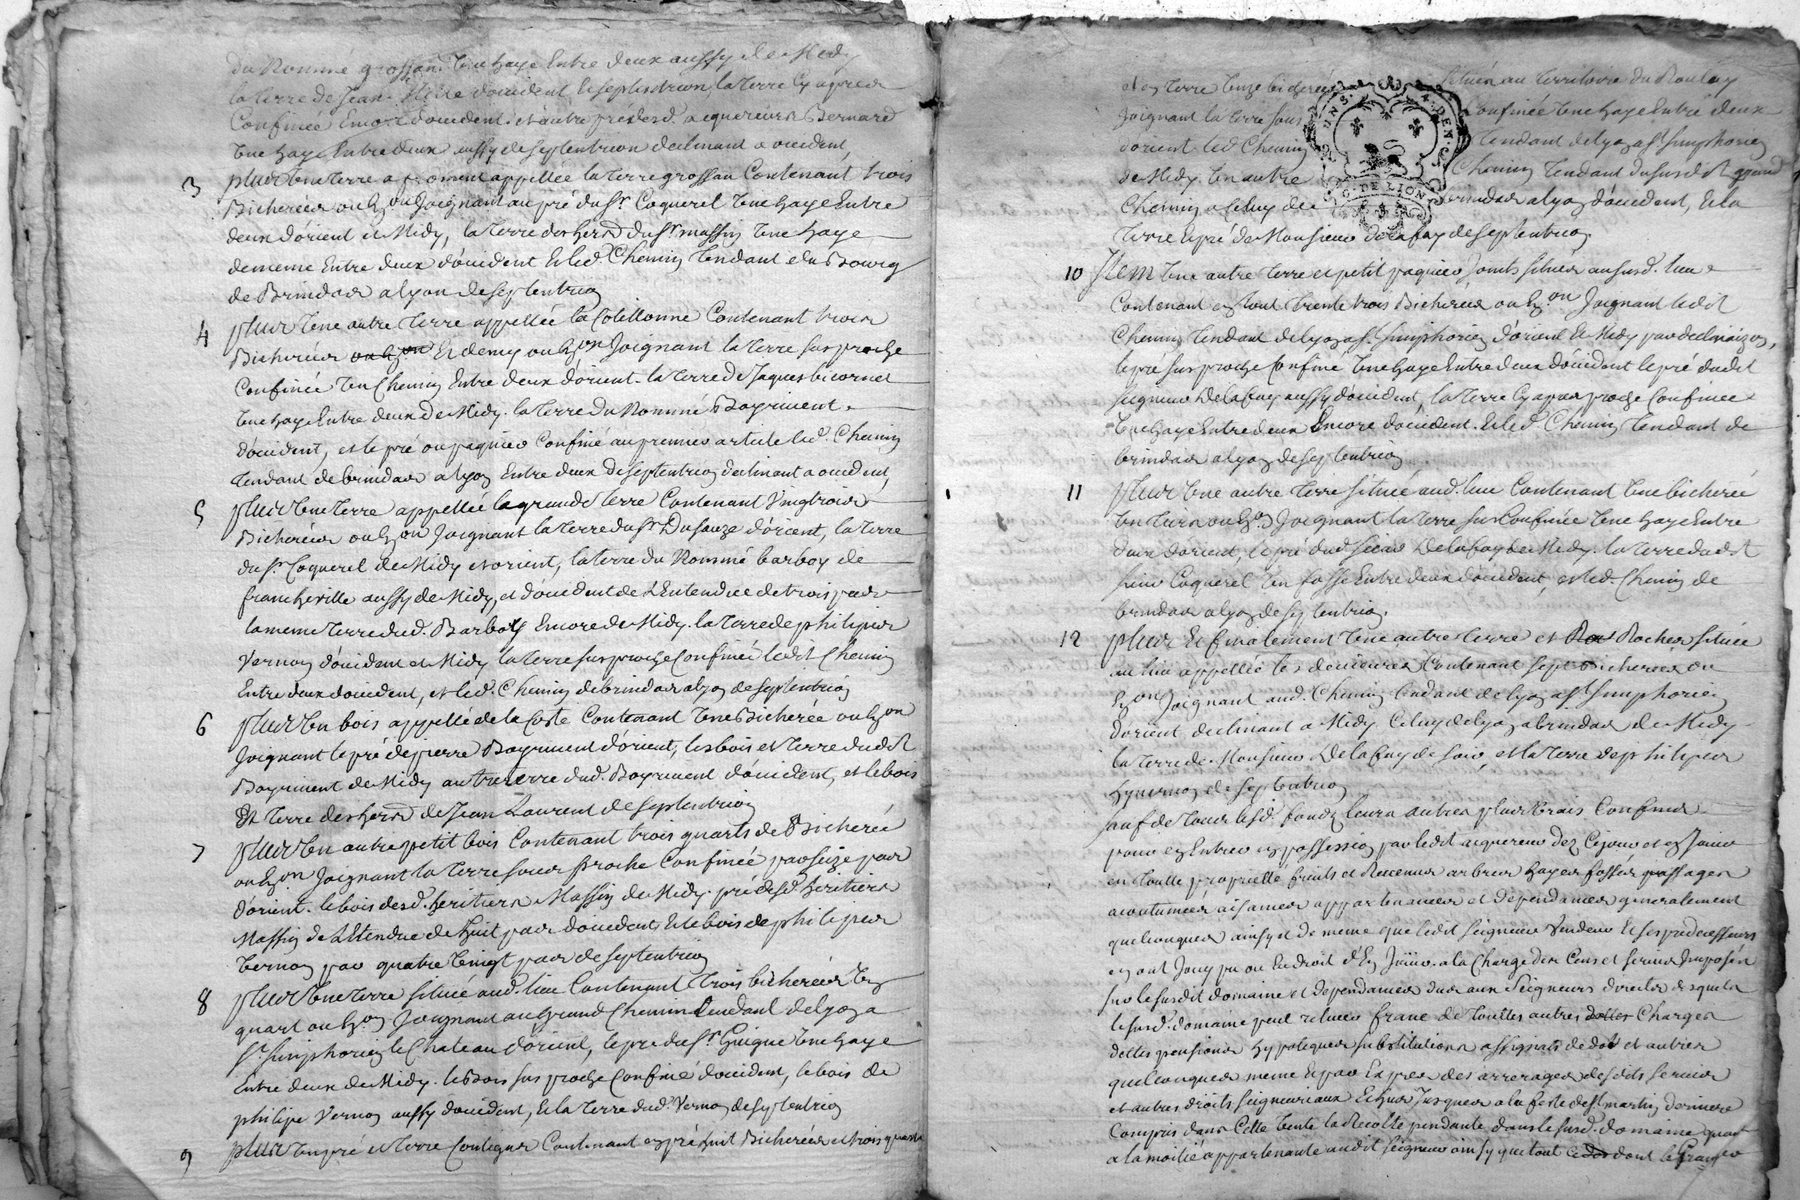 du Nommé grossan Une haye Entre deux aussy de Midy
la terre de Jean occident et septentrion, la terre Cy apres
Confinée Encore d'occident et autre pred. acquereurs Bernard
Une haye Entre deux aussy de septentrion declinant a occident,
3 plus Une terre a froment appellée la terre grossan Contenant trois
Bicherées ou Eon Joignant au pré du Sr. Coquerel Une haye Entre
deux d'orient et Midy, la terre des hers. du Sr. massin Une haye
de meme Entre deux d'occident Et led. Chemin tendant du Bourg
de Brindas a lyon de septentrion
4 plus Une autre terre appellée la Cotillonne Contenant trois
Bicherées ou Eon Et demy ou Eon Joignant la terre sus proche
Confinée Un Chemin Entre deux d'orient. la terre de Jaques bicornet
Une haye Entre deux de Midy. la terre du Nommé Bayriment
d'occident, et le pré ou paquier Confiné au premier article led. Chemin
tendant de brindas a lyon Entre deux de septentrion declinant a occident,
5 plus Une terre appellée la grande terre Contenant Vingtrois
Bicherées ou Eon Joignant la terre du Sr. Dusauze d'orient, la terre
du Sr. Coquerel de Midy et orient, la terre du Nommé barboy de
francheville aussy de Midy, et d'occident de L'Entendue de trois pas
la meme terre dud. Barboy Encore de Midy. la terre de philipes
Vernon d'occident et Midy la terre sus proche Confinée ledit Chemin
Entre deux d'occident, et led. Chemin de brindas a lyon de septentrion
6 plus Un bois appellé de la Coste Contenant Une Bicherée ou Eon
Joignant le pré de pierre Bayriment d'orient, les bois et terre dudit
Bayriment de Midy autre terre dud. Bayriment d'occident, et le bois
Et terre des hers. de Jean Laurent de septentrion
7 plus Un autre petit bois Contenant trois quarts de Bicherée
ou Eon Joignant la terre sous proche Confinée par seize pas
d'orient. le bois desd. heritiers Massin de Midy. pré desd. heritiers
Massin de L'Etendue de huit pas d'occident Et le bois de philipes
Vernon par quatre Vingt pas de septentrion
8 plus Une terre située aud. lieu Contenant trois bicherées Un
quart ou Eon Joignant au Grand Chemin tendant de lyon a
St. Simphorien le Chateau d'orient, le pré du Sr. Guigue Une haye
Entre deux de Midy. le Bois sus proche Confiné d'occident, le bois de
philipe Vernon aussy d'occident, Et la terre dud. Vernon de septentrion
9 plus Un pré et terre Contigus Contenant en pré huit Bicherées et trois quarts
et en terre Unze bicherées situés au territoire du Boulay
Joignant la terre sous Confinée Une haye Entre deux
d'orient led. Chemin tendant de lyon a St. Simphorien
de Midy. Un autre Chemin tendant du susdit grand
Chemin a Celuy de Brindas a lyon d'occident, Et la
terre Et pré de Monsieur Delafay de septentrion
10 Item Une autre terre et petit paquier Joints situés au susd. lieu
Contenant en tout trente trois Bicherées ou Eon Joignant ledit
Chemin tendant de lyon a St. Simphorien d'orient Et Midy par declinaizon,
le pré sus proche Confiné Une haye Entre deux d'occident le pré dudit
seigneur Delafay aussy d'occident, la terre Cy apres proche Confinée
Une haye Entre deux Encore d'occident. Et led. Chemin tendant de
brindas a lyon de septentrion
11 plus Une autre terre située aud. lieu Contenant Une bicherée
Un tiers ou Eon Joignant la terre sus Confinée Une haye Entre
deux d'orient, le pré dud. sieur Delafay de Midy. la terre dudit
sieur Coquerel Un fossé Entre deux d'occident, et led. Chemin de
brindas a lyon de septentrion.
12 plus Et finalement Une autre terre et Ro Rocher située
au lieu appellé les Contenant sept Bicherées ou
Eon Joignant aud. Chemin tendant de lyon a St. Simphorien
d'orient declinant a Midy. Celuy de lyon a brindas de Midy
la terre de Monsieur Delafay de soir, et la terre de philipes
Vernon de septentrion
sauf de tous lesd. fonds leurs autres plus Vrais Confins
pour en Entrer en possession par ledit acquereur dez Ce jour et en Jouir
en toutte proprieté fruits et Revenus arbres hayes fossés passages
acoutumées aisances appartenances et dependances generalement
quelconques ainsy et de meme que ledit seigneur Vendeur Et ses predecesseurs
en ont Jouy pu ou Eu droit d'En Jouir. a la Charge des Cens et servis Imposés
sur le susdit domaine et dependances dus aux Seigneurs directes desquels
le susd. domaine peut relever franc de touttes autres dottes Charges
dettes pensions hypoteques substitutions assignats de dot et autres
quelconques meme Et par Exprès des arrerages desdits servis
et autres droits seigneuriaux Echus Jusques a la feste de St. martin derniere
Compris dans Cette Vente la Recolte pendante dans le susd. domaine quant
a la moitié appartenante audit seigneur ainsy que tout dont le Granger
UNS. A. DEN. G. DE LION